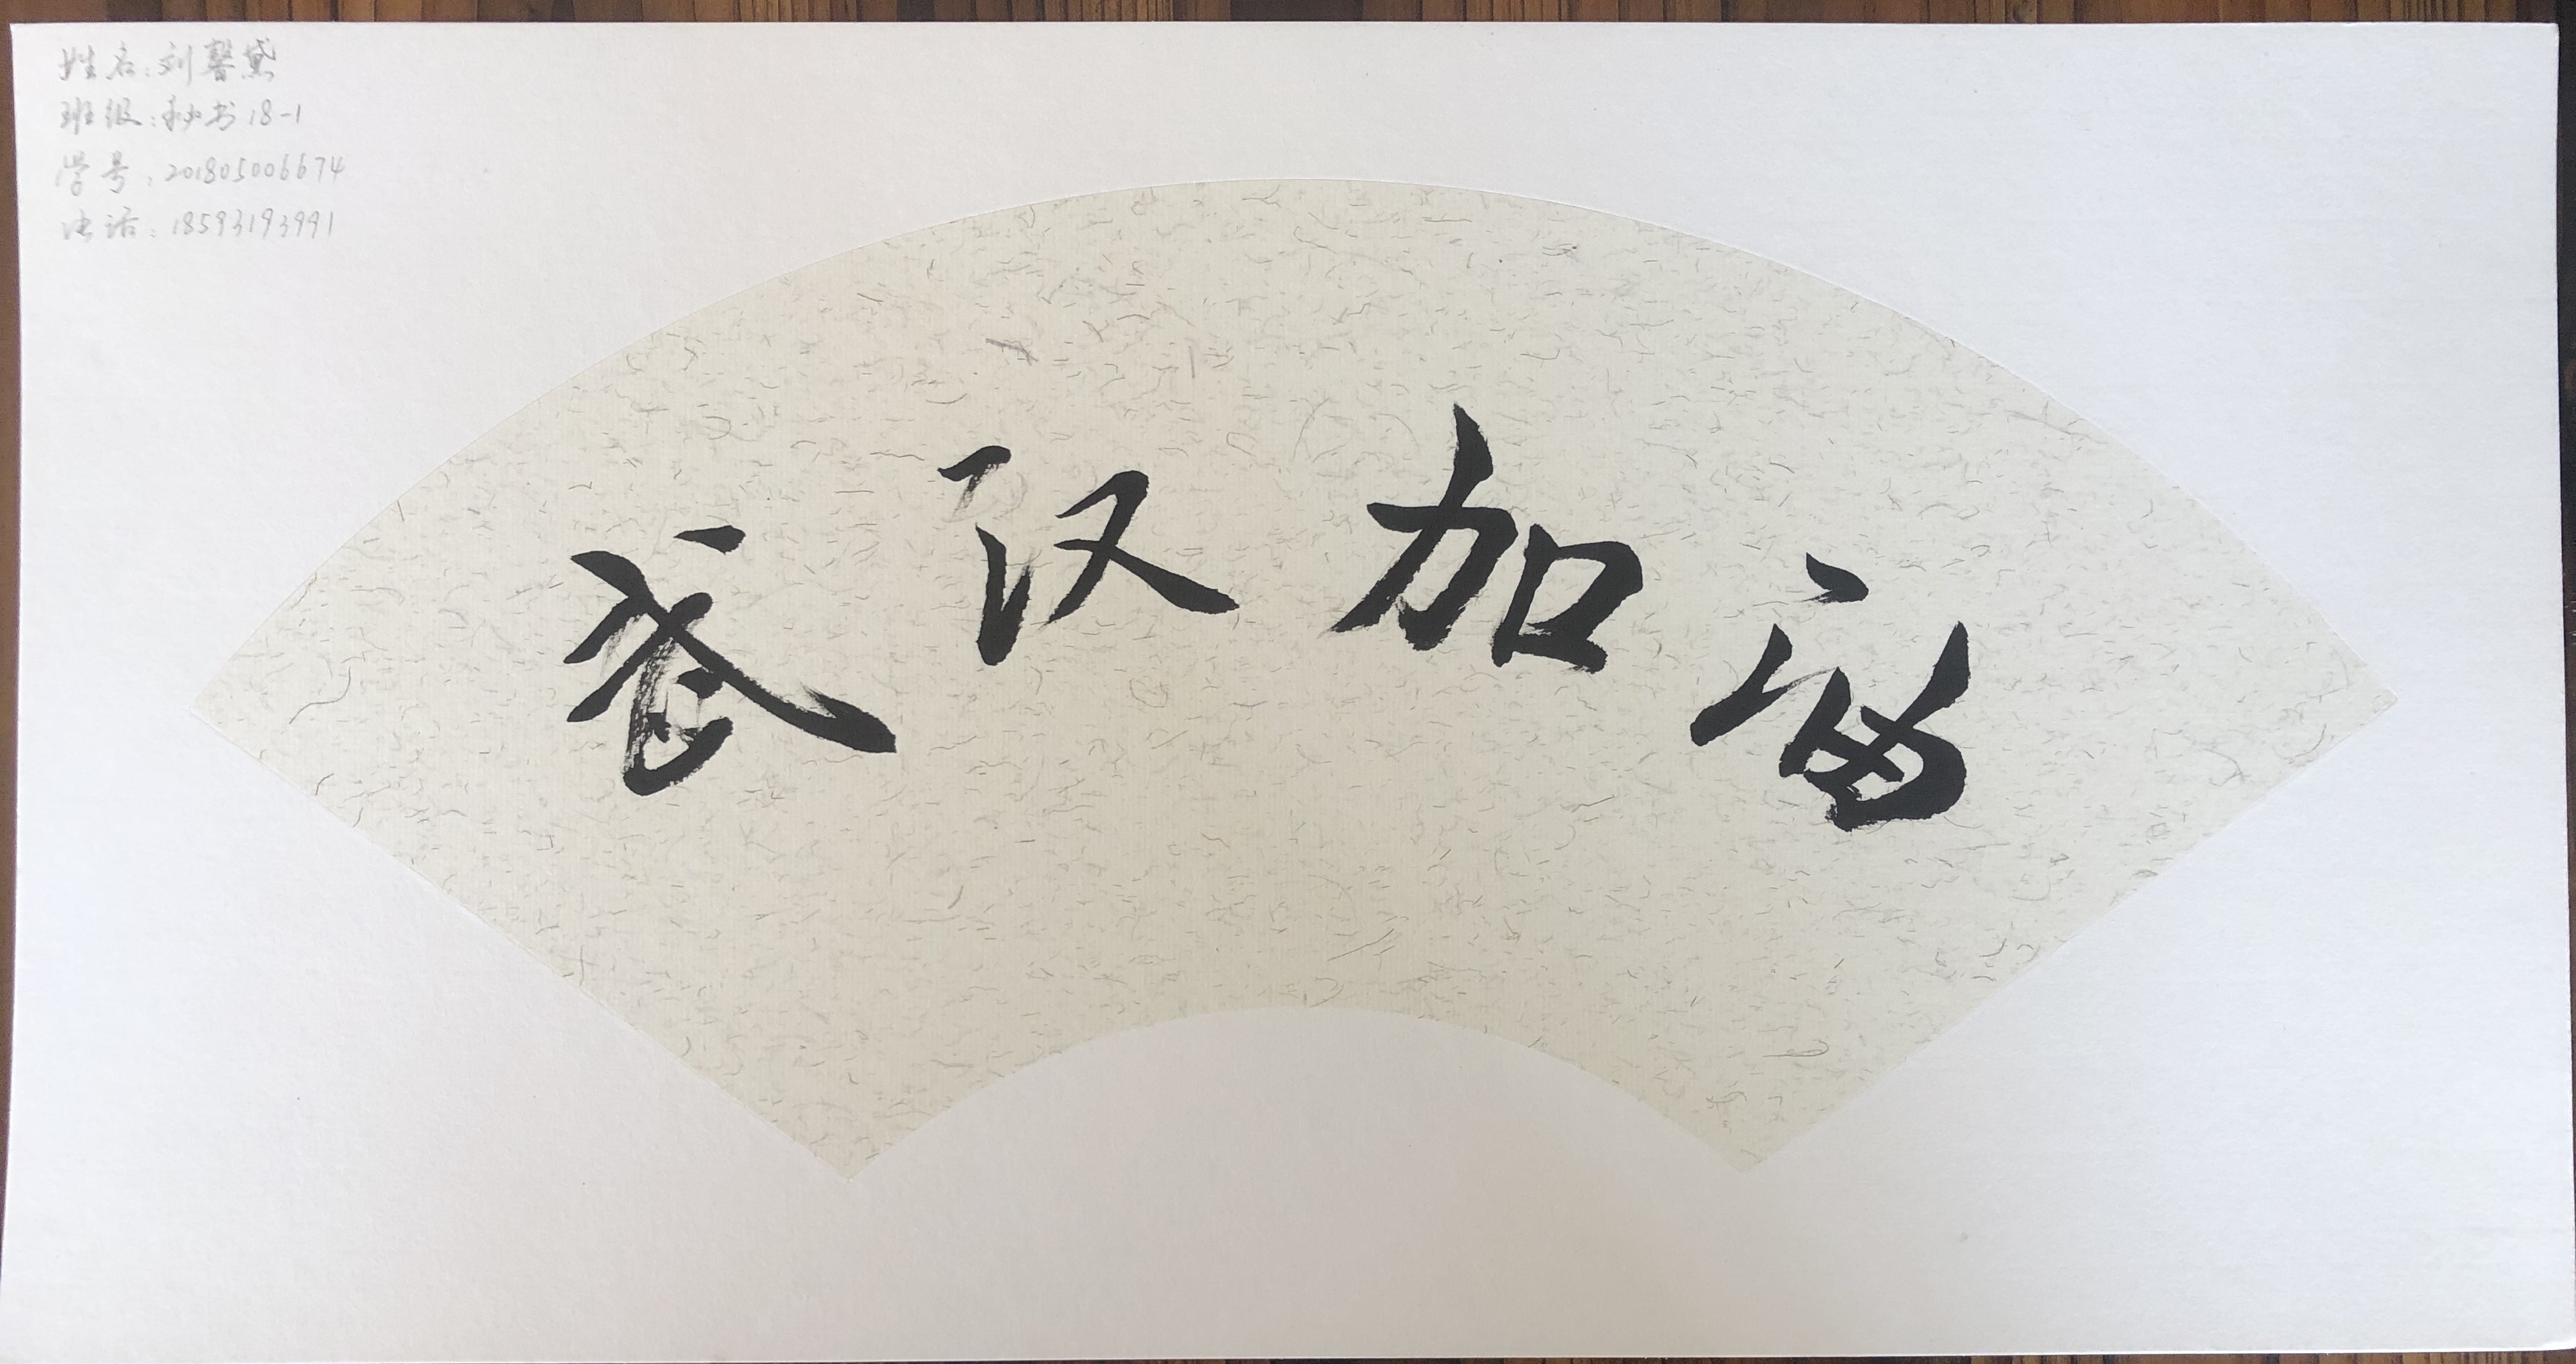 姓名：刘馨黛
班级：秘书18-1
学号：201805006674
电话：18593193991
武汉加油